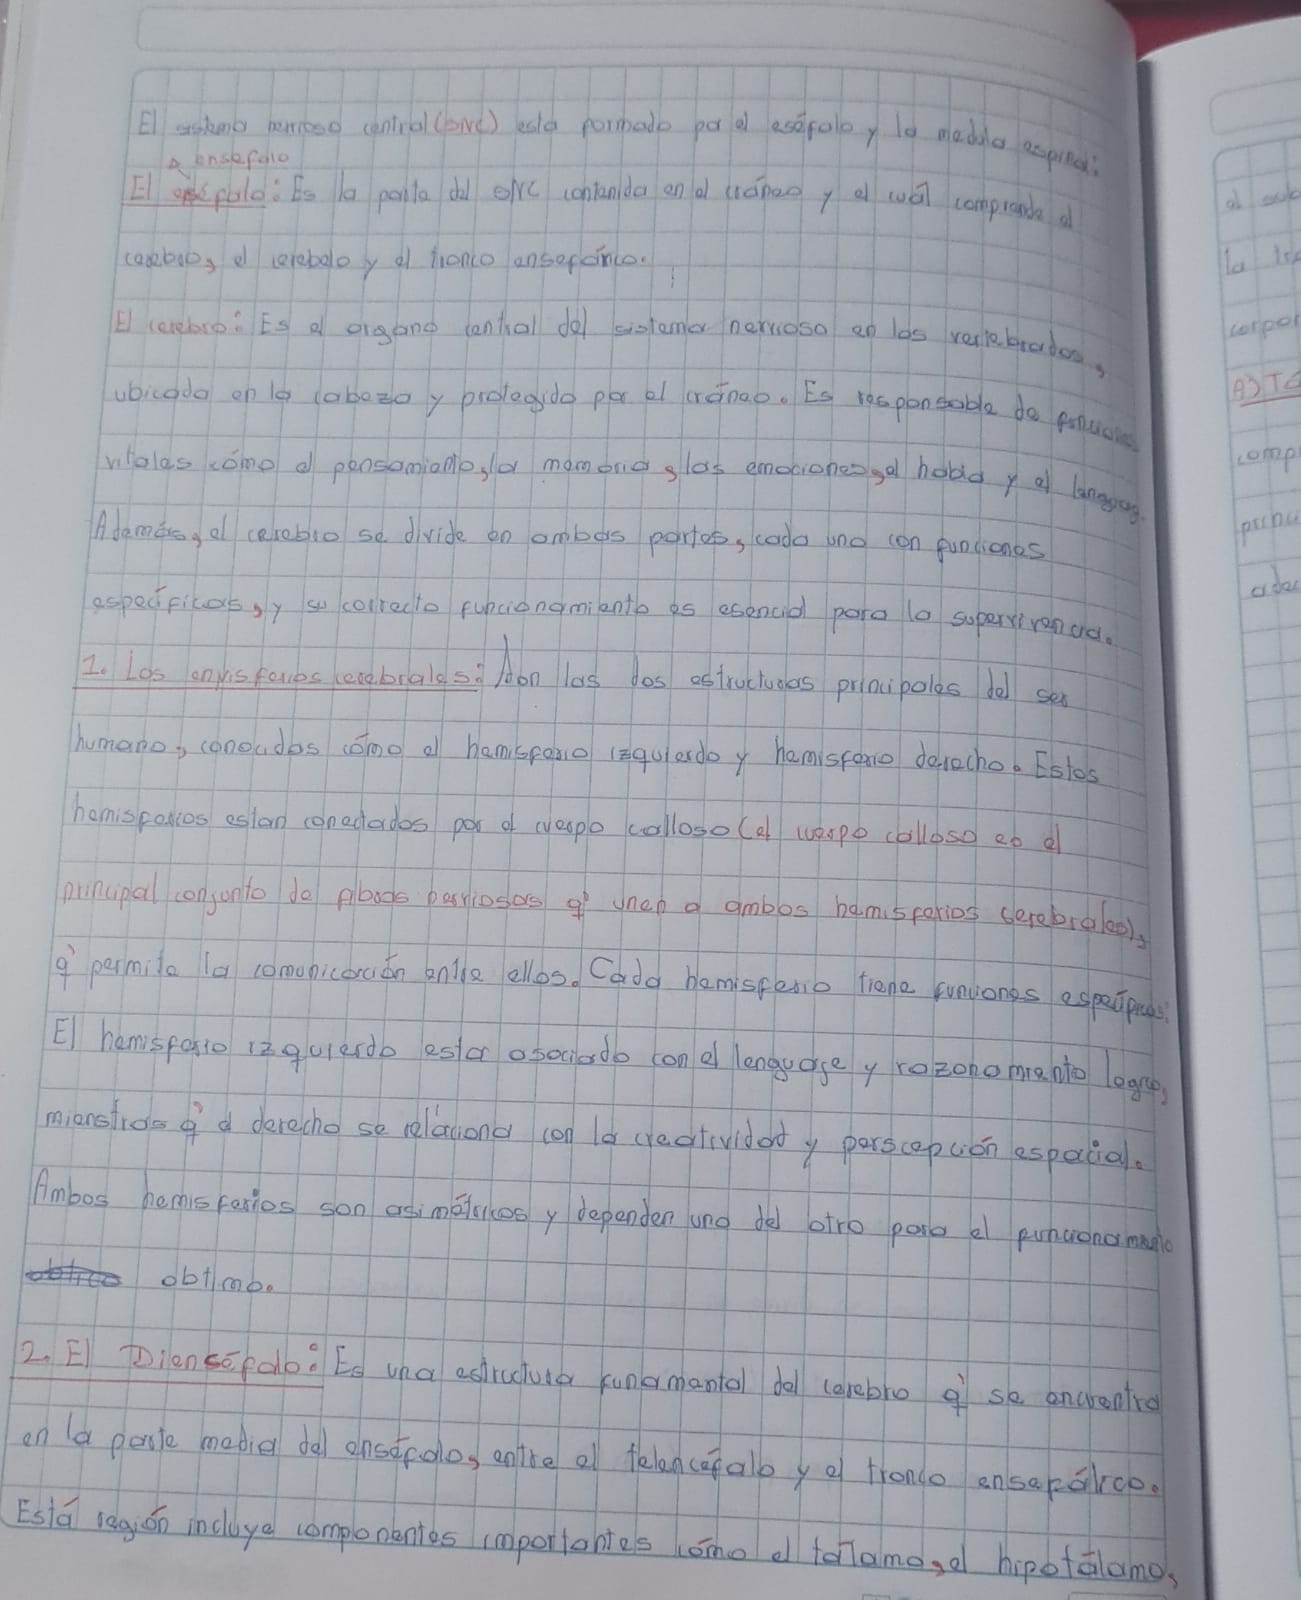 El sistema nervioso central (SNC) esta formado por el esefalo y la medula espinal:
ensefalo
El : Es la parte del SNC contenida en el cráneo y el cuál comprende el
cerebro, el cerebelo y el tronco ensefárico.
El cerebro: Es el organo central del sistema nervioso en los vertebrados,
ubicado en la cabeza y protegido por el cráneo. Es responsable de funciones
vitales cómo el pensamiento, la memoria, las emociones, el habla y el lenguage.
Además, el cerebro se divide en ambas partes, cada una con funciones
especificas, y su correcto funcionamiento es esencial para la supervivencia.
1. Los emisferios cerebrales: Son las dos estructuras principales del ser
humano, conocidos cómo el hemisferio izquierdo y hemisferio derecho. Estos
hemisferios estan conectados por el cuerpo calloso (el cuerpo calloso es el
principal conjunto de fibras nerviosas q' unen a ambos hemisferios cerebrales),
q' permite la comunicación entre ellos. Cada hemisferio tiene funciones especificas:
El hemisferio izquierdo esta asociado con el lenguage y razonamiento logico,
mienstras q' el derecho se relaciona con la creatividad y perscepción espacial.
Ambos hemisferios son asimétricos y dependen uno del otro para el funcionamiento
obtimo.
2. El Diensefalo: Es una estructura funamental del cerebro q' se encuentra
en la parte media del ensefalo, entre el telencefalo y el tronco ensefálico.
Está región incluye componentes importantes cómo el tálamo, el hipotálamo,
al
la
corpor
A)
comp
princi
adec